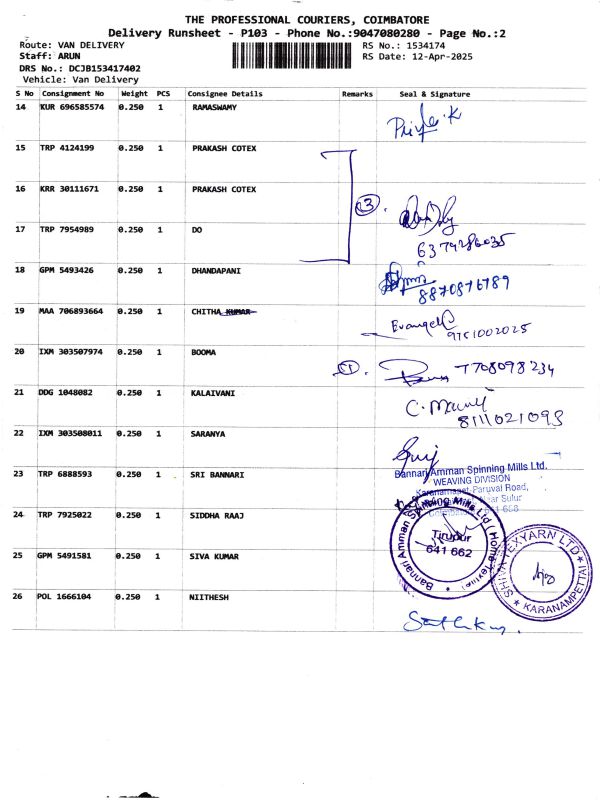 THE PROFESSIONAL COURIERS, COIMBATORE
Delivery Runsheet - P103 - Phone No.:9047080280 - Page No.:2
Route: VAN DELIVERY RS No.: 1534174
Staff: ARUN RS Date: 12-Apr-2025
DRS No.: DCJB153417402
Vehicle: Van Delivery
S No Consignment No Weight PCS Consignee Details Remarks Seal & Signature
14 KUR 696585574 0.250 1 RAMASWAMY
Priya.K
15 TRP 4124199 0.250 1 PRAKASH COTEX
16 KRR 30111671 0.250 1 PRAKASH COTEX
3
17 TRP 7954989 0.250 1 DO
6374286035
18 GPM 5493426 0.250 1 DHANDAPANI
8870876789
19 MAA 706893664 0.250 1 CHITHA KUMAR
Evangel
9751002025
20 IXM 303507974 0.250 1 BOOMA
7708098234
21 DDG 1048082 0.250 1 KALAIVANI
8111021093
22 IXM 303508011 0.250 1 SARANYA
23 TRP 6888593 0.250 1 SRI BANNARI
Bannari Amman Spinning Mills Ltd.
WEAVING DIVISION
Karanampet-Paruvai Road,
Sulur
24 TRP 7925022 0.250 1 SIDDHA RAAJ
Bannari Amman Spinning Mills Ltd (Home Textile)
Tirupur
641 662
25 GPM 5491581 0.250 1 SIVA KUMAR
SHIVA TEXYARN LTD
KARANAMPETTAI
26 POL 1666104 0.250 1 NIITHESH